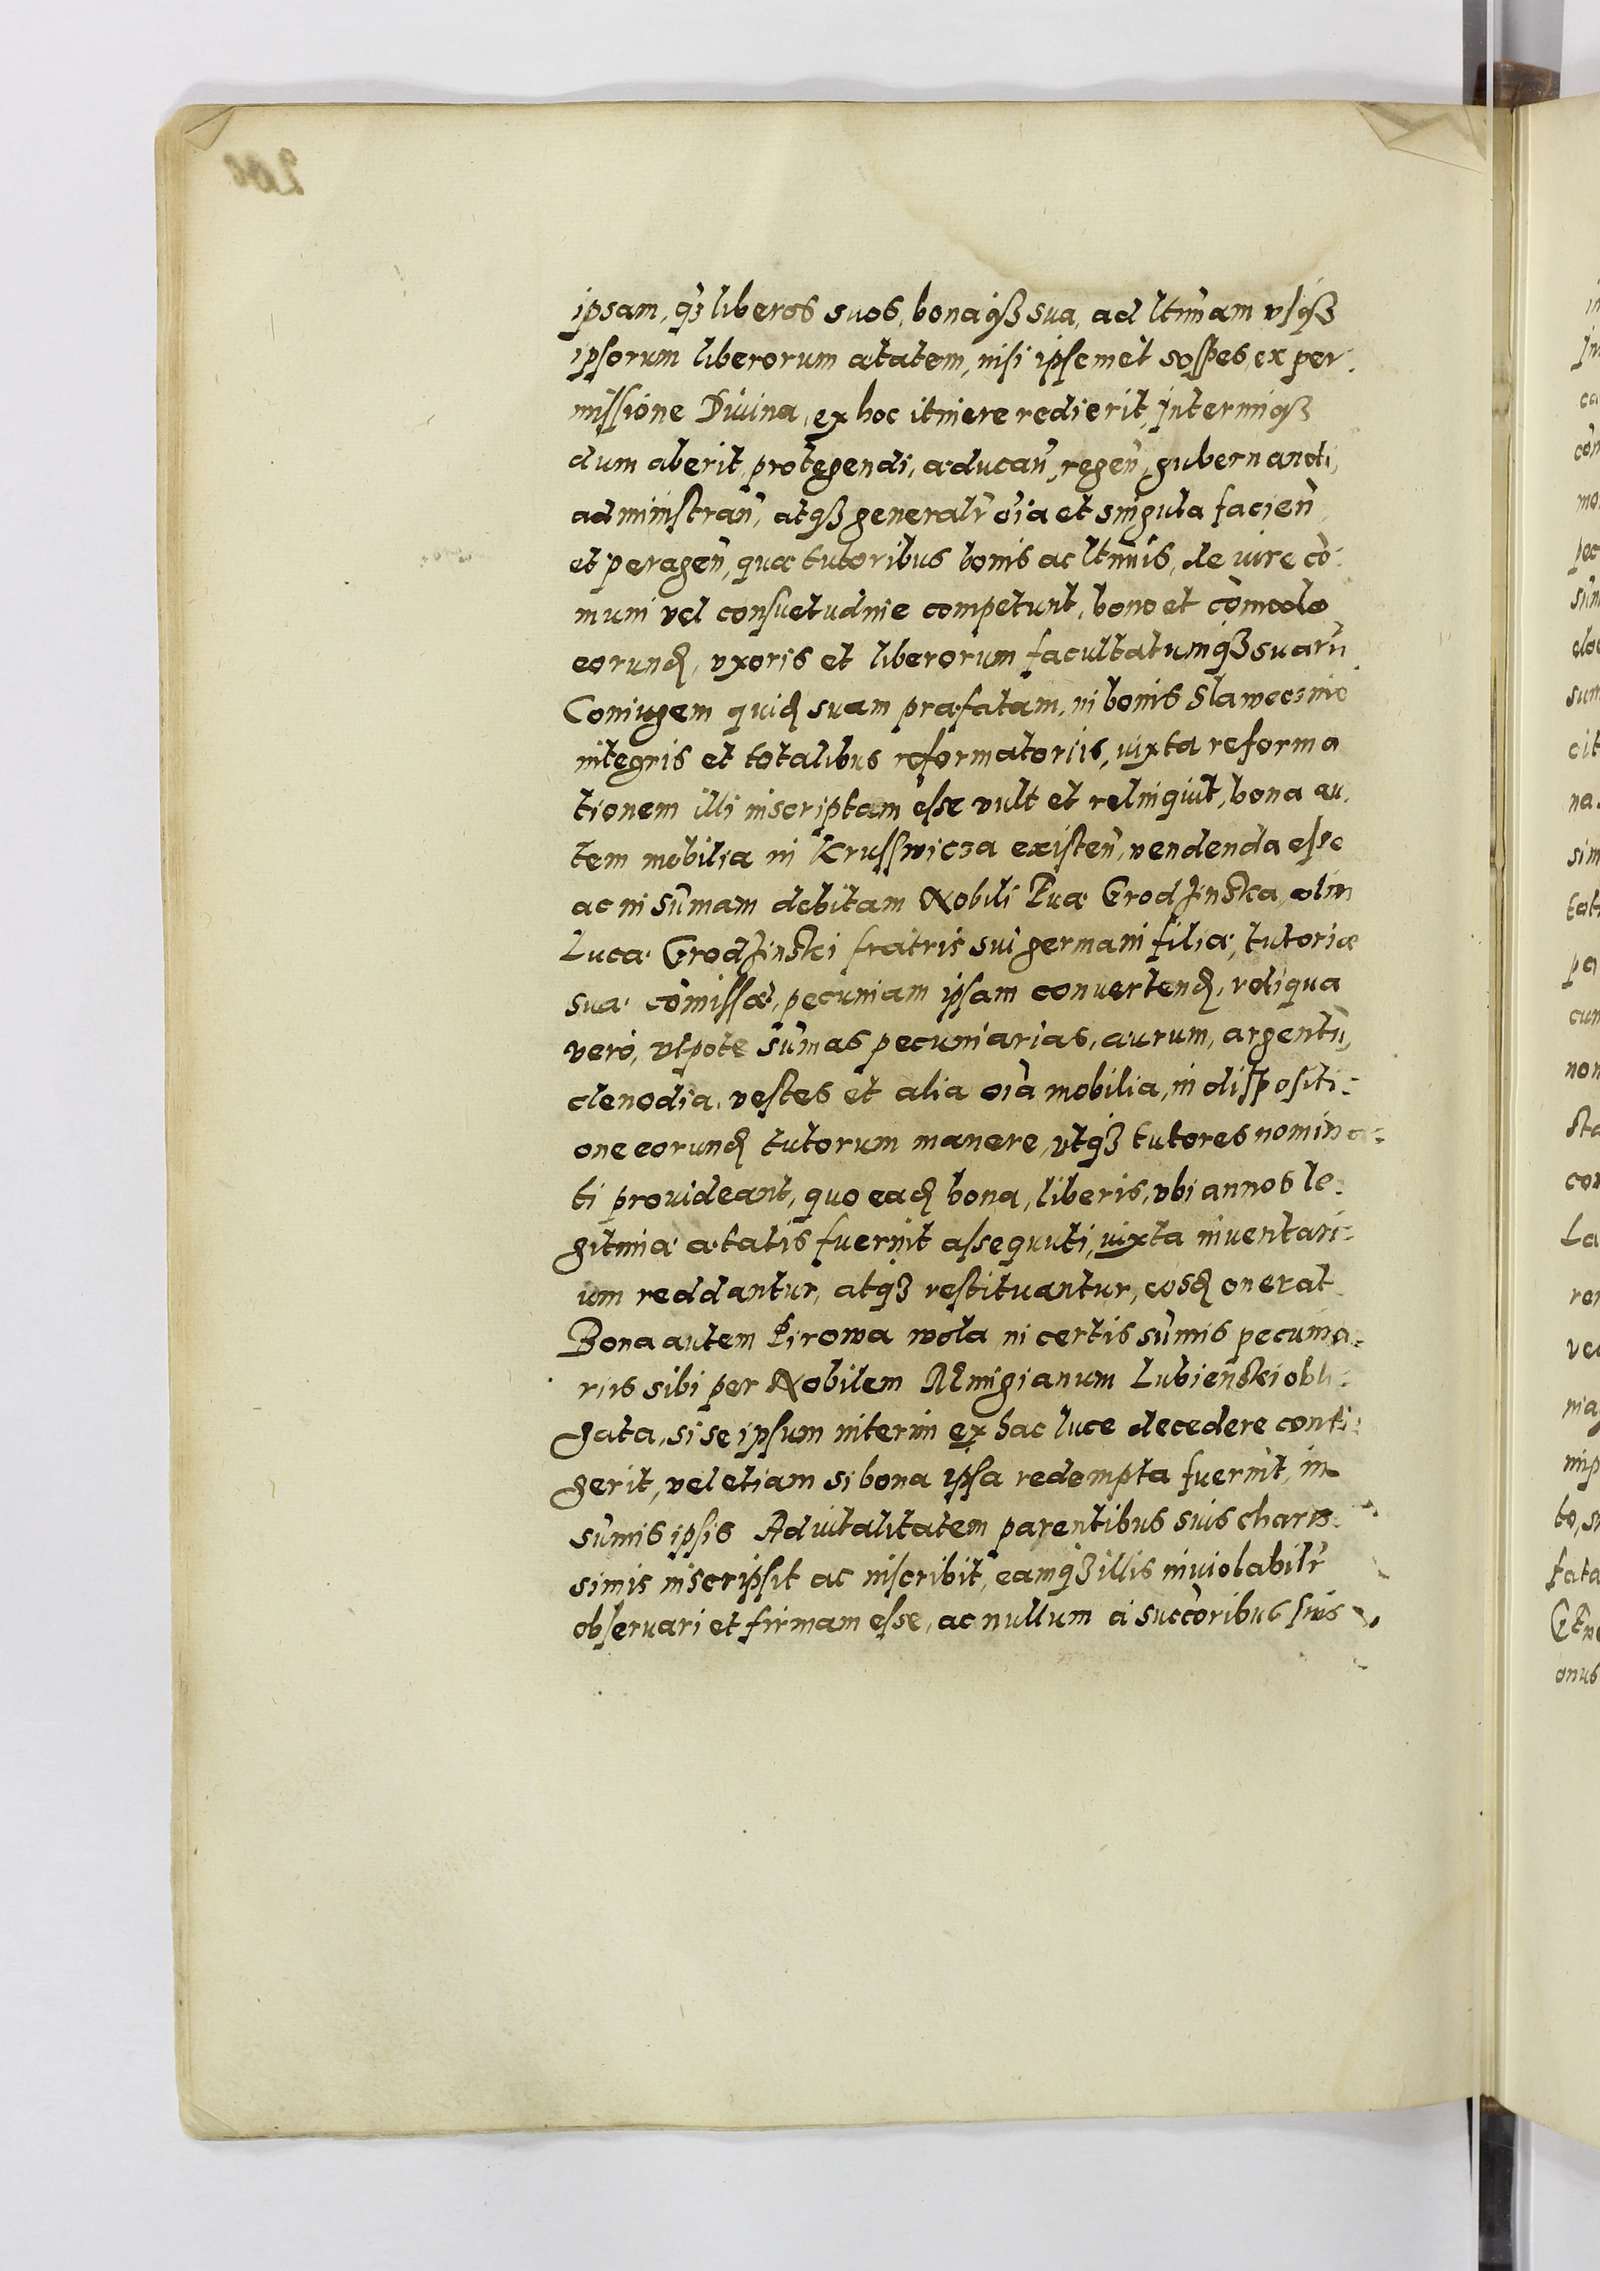 ipsam, q3 liberos suos, bonaq3 sua, ad ltimam vsq3
ipsorum liberorum ætatem, nisi ipsemet sospes, ex per-
missione Diuina, ex hoc itinere redierit, Interimq3
dum aberit, protegendi, æducan̄, regen̄, gubernandi,
administran̄, atq3 generalr̄ oīa et singula facien̄
et peragen̄, quæ tutoribus bonis ac ltimis, de iure cō-
muni vel consuetudine competunt, bono et cōmodo
eorund, vxoris et liberorum facultatumq3 suarū
Coniugem quid suam præfatam, in bonis Slawecznio
integris et totalibus reformatoriis, iuxta reforma
tionem illi inscriptam esse vult et relinquit, bona au-
tem mobilia in Krusswicza existen̄, vendenda esse
ac in sūmam debitam Nobili Euæ Grodzinska, olim
Lucæ Grodzinski fratris sui germani filiæ, tutoriæ
suæ cōmissæ, pecuniam ipsam conuertend, reliqua
vero, vtpote sūmas pecuniarias, aurum, argentū,
clenodia, vestes et alia oīa mobilia, in dispositi-
one eorund tutorum manere, vtq3 tutores nomina-
ti prouideant, quo ead bona, liberis, vbi annos le-
gitimæ ætatis fuerint assequuti, iuxta inuentari-
um reddantur, atq3 restituantur, eosd onerat
Bona autem Pirowa wola in certis sūmis pecunia-
riis sibi per Nobilem Remigianum Lubieński obli-
gata, si se ipsum interim ex hac luce decedere conti-
gerit, vel etiam si bona ipsa redempta fuerint, in
sūmis ipsis Aduitalitatem parentibus suis charis-
simis inscripsit ac inscribit, eamq3 illis inuiolabilr̄
obseruari et firmam esse, ac nullum à succōribus suis